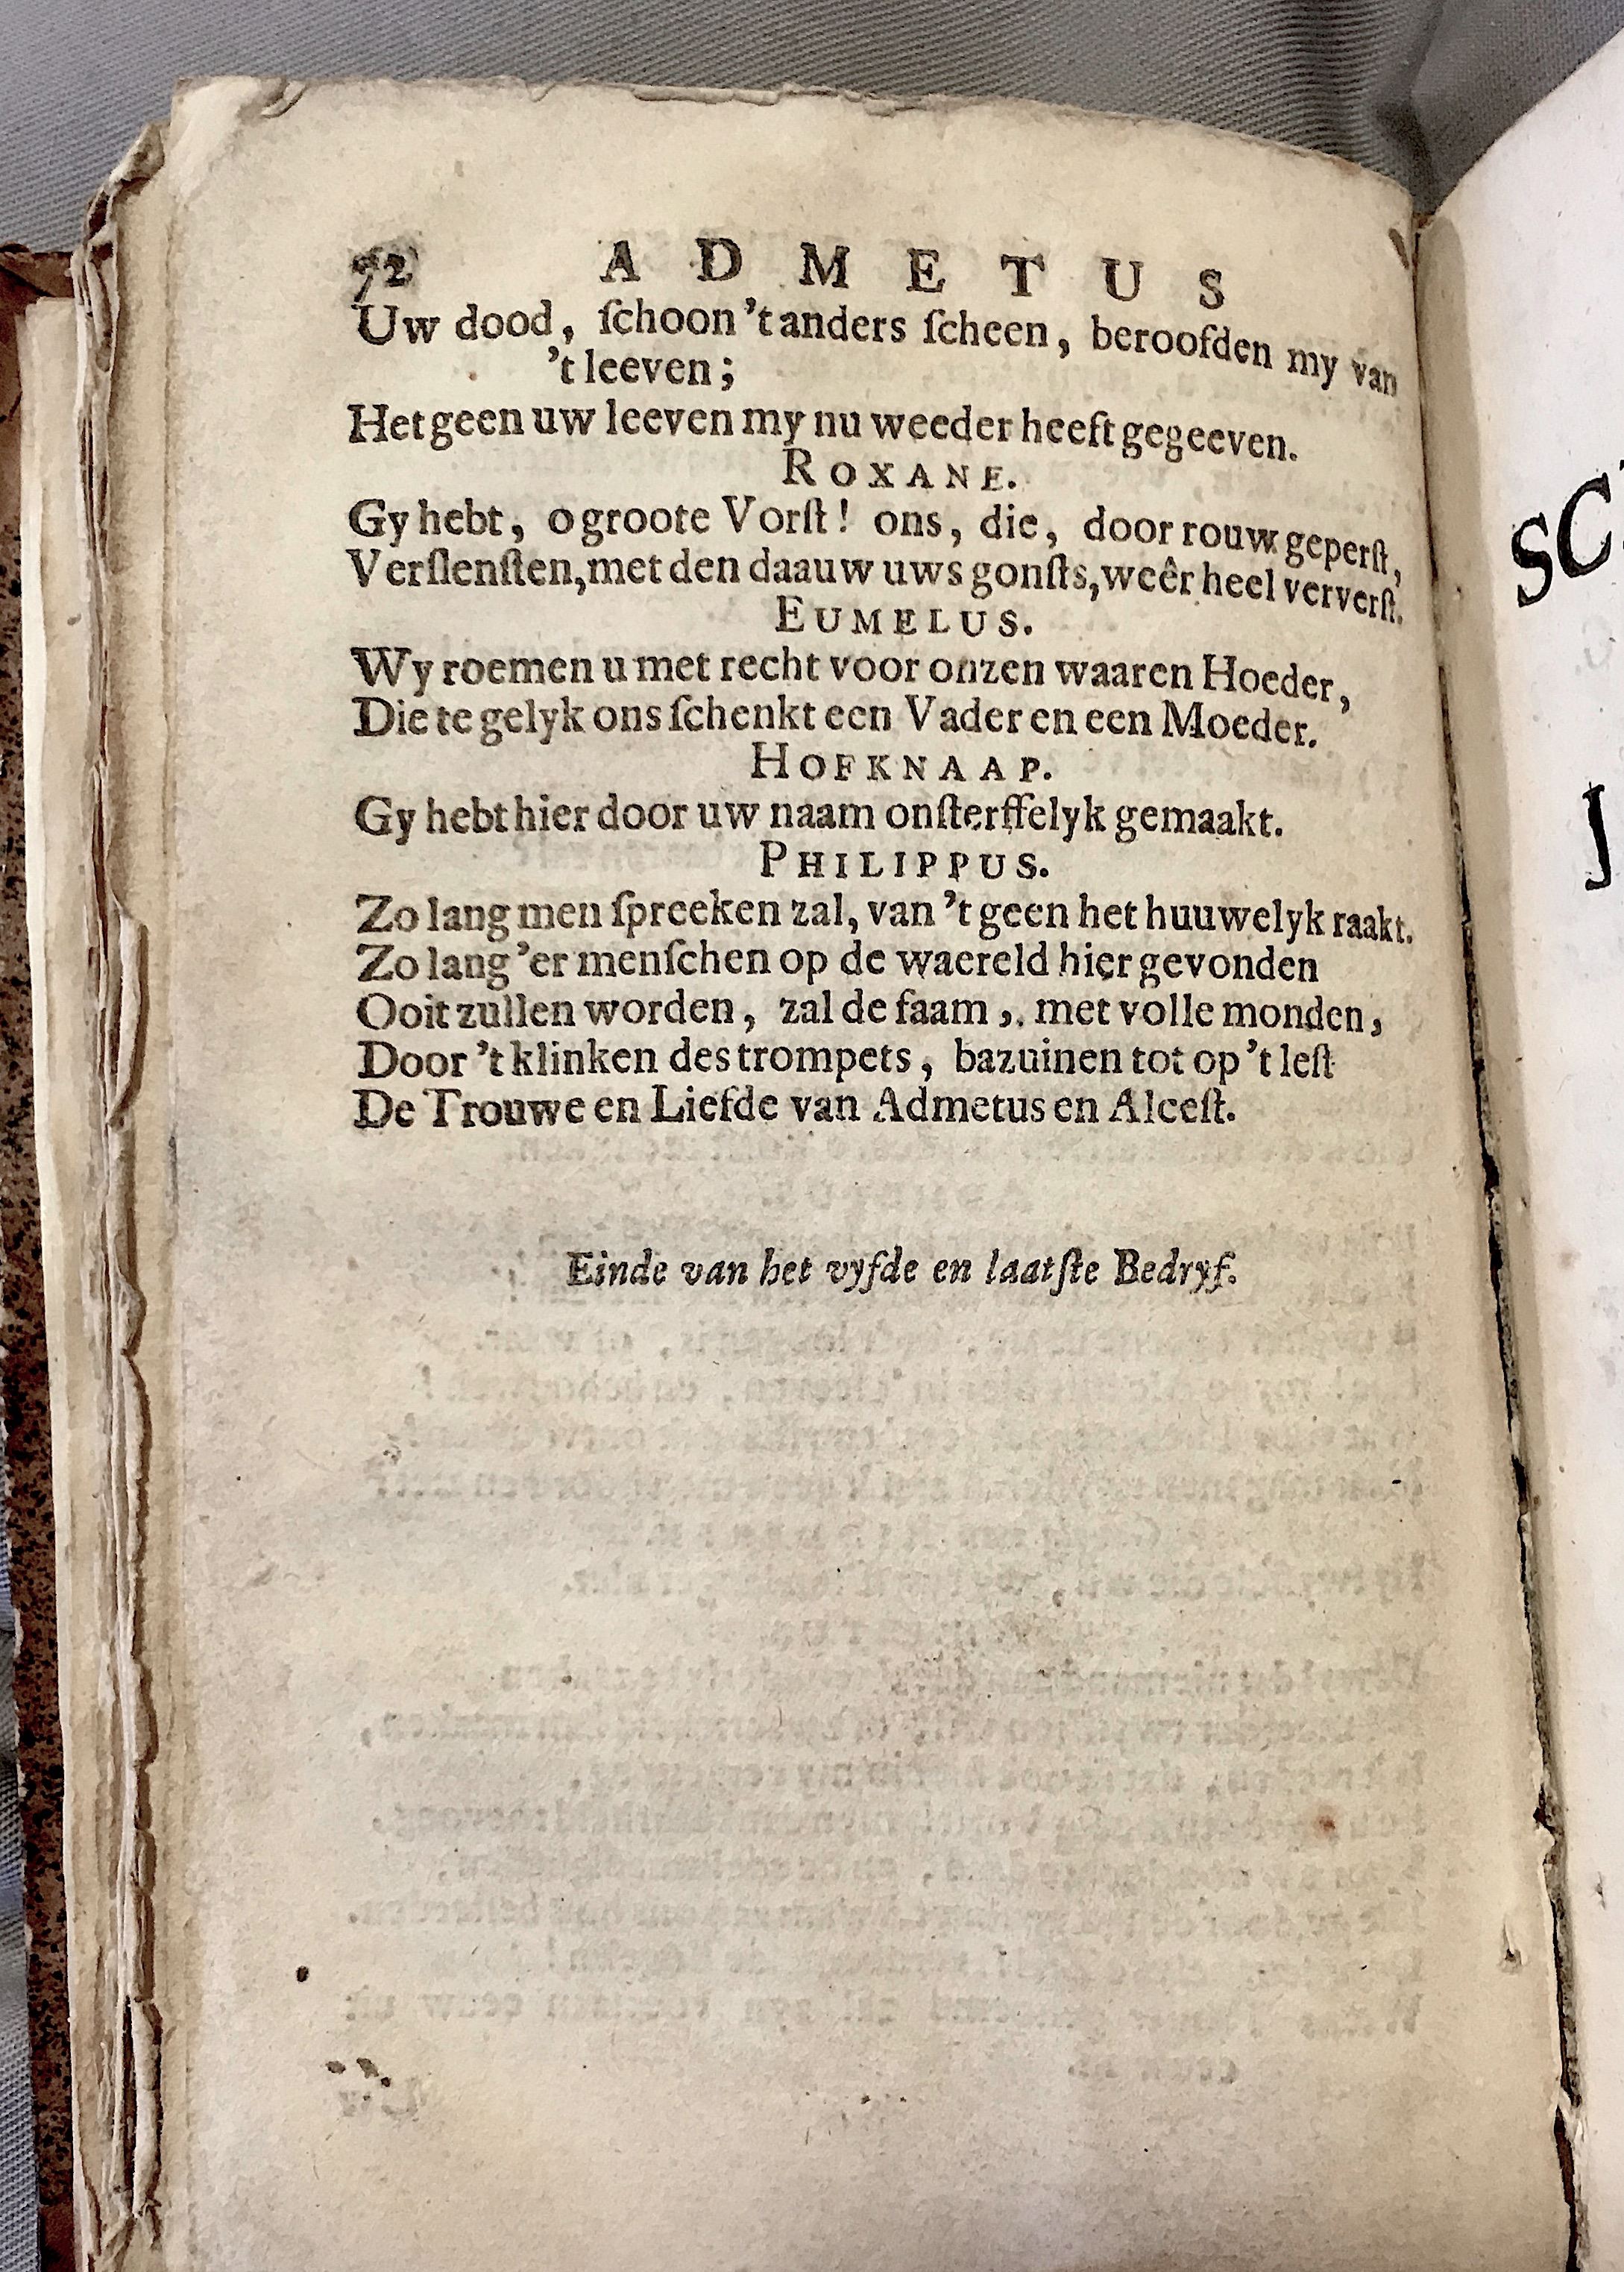 72 ADMETUS
Uw dood, ſchoon 't anders ſcheen, beroofden my van
't leeven;
Het geen uw leeven my nu weeder heeft gegeeven.
ROXANE.
Gy hebt, o groote Vorſt! ons, die, door rouw geperſt,
Verſlenſten, met den daauw uws gonſts, weêr heel ververſt.
EUMELUS.
Wy roemen u met recht voor onzen waaren Hoeder,
Die te gelyk ons ſchenkt een Vader en een Moeder.
HOFKNAAP.
Gy hebt hier door uw naam onſterffelyk gemaakt.
PHILIPPUS.
Zo lang men ſpreeken zal, van 't geen het huuwelyk raakt.
Zo lang 'er menſchen op de waereld hier gevonden
Ooit zullen worden, zal de faam,. met volle monden,
Door 't klinken des trompets, bazuinen tot op 't leſt
De Trouwe en Liefde van Admetus en Alceſt.
Einde van het vyfde en laatſte Bedryf.
SC
J